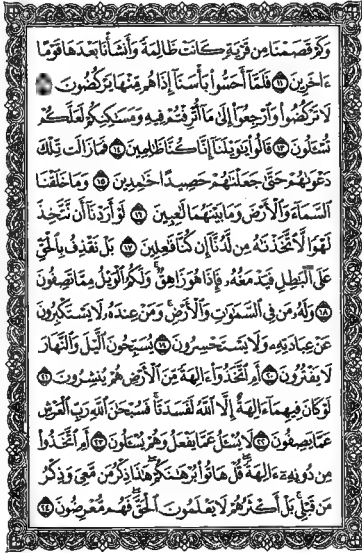 وَكَمْ قَصَمْنَا مِن قَرْيَةٍ كَانَتْ ظَالِمَةً وَأَنشَأْنَا بَعْدَهَا قَوْمًا
ءَاخَرِينَ ۝١١ فَلَمَّآ أَحَسُّوا۟ بَأْسَنَآ إِذَا هُم مِّنْهَا يَرْكُضُونَ ۝١٢
لَا تَرْكُضُوا۟ وَٱرْجِعُوٓا۟ إِلَىٰ مَآ أُتْرِفْتُمْ فِيهِ وَمَسَٰكِنِكُمْ لَعَلَّكُمْ
تُسْـَٔلُونَ ۝١٣ قَالُوا۟ يَٰوَيْلَنَآ إِنَّا كُنَّا ظَٰلِمِينَ ۝١٤ فَمَا زَالَت تِّلْكَ
دَعْوَىٰهُمْ حَتَّىٰ جَعَلْنَٰهُمْ حَصِيدًا خَٰمِدِينَ ۝١٥ وَمَا خَلَقْنَا
ٱلسَّمَآءَ وَٱلْأَرْضَ وَمَا بَيْنَهُمَا لَٰعِبِينَ ۝١٦ لَوْ أَرَدْنَآ أَن نَّتَّخِذَ
لَهْوًا لَّٱتَّخَذْنَٰهُ مِن لَّدُنَّآ إِن كُنَّا فَٰعِلِينَ ۝١٧ بَلْ نَقْذِفُ بِٱلْحَقِّ
عَلَى ٱلْبَٰطِلِ فَيَدْمَغُهُۥ فَإِذَا هُوَ زَاهِقٌ ۚ وَلَكُمُ ٱلْوَيْلُ مِمَّا تَصِفُونَ
۝١٨ وَلَهُۥ مَن فِى ٱلسَّمَٰوَٰتِ وَٱلْأَرْضِ ۚ وَمَنْ عِندَهُۥ لَا يَسْتَكْبِرُونَ
عَنْ عِبَادَتِهِۦ وَلَا يَسْتَحْسِرُونَ ۝١٩ يُسَبِّحُونَ ٱلَّيْلَ وَٱلنَّهَارَ
لَا يَفْتُرُونَ ۝٢٠ أَمِ ٱتَّخَذُوٓا۟ ءَالِهَةً مِّنَ ٱلْأَرْضِ هُمْ يُنشِرُونَ ۝٢١
لَوْ كَانَ فِيهِمَآ ءَالِهَةٌ إِلَّا ٱللَّهُ لَفَسَدَتَا ۚ فَسُبْحَٰنَ ٱللَّهِ رَبِّ ٱلْعَرْشِ
عَمَّا يَصِفُونَ ۝٢٢ لَا يُسْـَٔلُ عَمَّا يَفْعَلُ وَهُمْ يُسْـَٔلُونَ ۝٢٣ أَمِ ٱتَّخَذُوا۟
مِن دُونِهِۦٓ ءَالِهَةً ۖ قُلْ هَاتُوا۟ بُرْهَٰنَكُمْ ۖ هَٰذَا ذِكْرُ مَن مَّعِىَ وَذِكْرُ
مَن قَبْلِى ۗ بَلْ أَكْثَرُهُمْ لَا يَعْلَمُونَ ٱلْحَقَّ ۖ فَهُم مُّعْرِضُونَ ۝٢٤